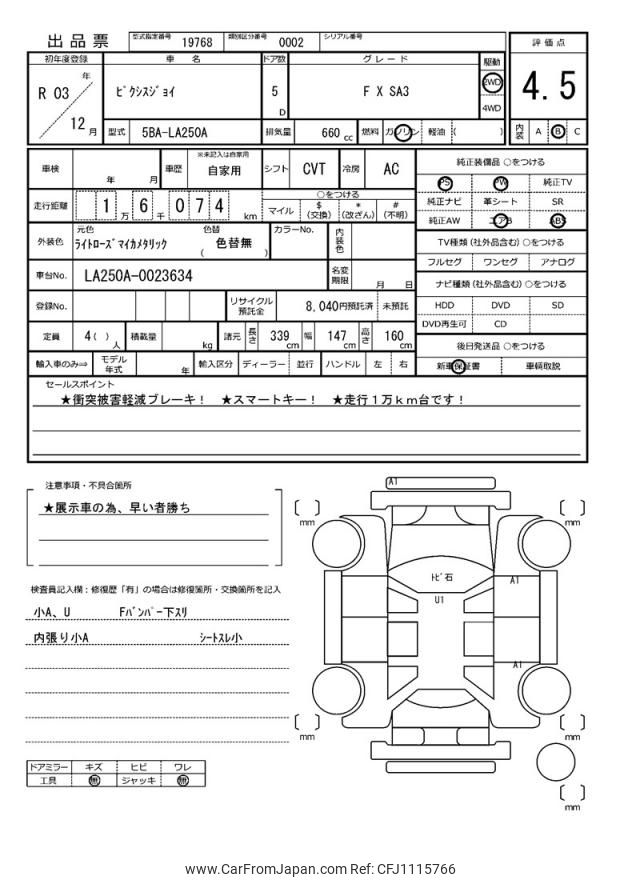 出品票
型式指定番号 19768 類別区分番号 0002 シリアル番号
初年度登録 車名 ドア数 グレード 駆動 評価点
R 03 年 12 月 ﾋﾟｸｼｽｼﾞｮｲ 5 D F X SA3 2WD 4WD 4.5
型式 5BA-LA250A 排気量 660 cc 燃料 ガソリン 軽油 ( ) 内装 A B C
車検 年 月 車歴 ※未記入は自家用 自家用 シフト CVT 冷房 AC 純正装備品 ○をつける
PS PW 純正TV
走行距離 1 万 6 千 0 7 4 km ○をつける
マイル $(交換) *(改ざん) #(不明)
純正ナビ 革シート SR
純正AW エアB ABS
外装色 元色 ﾗｲﾄﾛｰｽﾞﾏｲｶﾒﾀﾘｯｸ 色替 ( 色替無 ) カラーNo. 内装色
TV種類 (社外品含む) ○をつける
フルセグ ワンセグ アナログ
車台No. LA250A-0023634 名変期限 月 日
ナビ種類 (社外品含む) ○をつける
登録No. リサイクル預託金 8,040円預託済 未預託
HDD DVD SD
DVD再生可 CD
定員 4 ( ) 人 積載量 kg 諸元 長さ 339 cm 幅 147 cm 高さ 160 cm
後日発送品 ○をつける
輸入車のみ⇒ モデル年式 年 輸入区分 ディーラー 並行 ハンドル 左 右
新車保証書 車輌取説
セールスポイント
★衝突被害軽減ブレーキ！ ★スマートキー！ ★走行１万ｋｍ台です！
注意事項・不具合箇所
★展示車の為、早い者勝ち
検査員記入欄：修復歴「有」の場合は修復箇所・交換箇所を記入
小A、U Fﾊﾞﾝﾊﾟｰ下ｽﾘ
内張り小A ｼｰﾄｽﾚ小
ドアミラー キズ ヒビ ワレ
工具 無 ジャッキ 無
A1
mm
mm
ﾄﾋﾞ石
A1
U1
A1
mm
mm
mm
www.CarFromJapan.com Ref: CFJ1115766